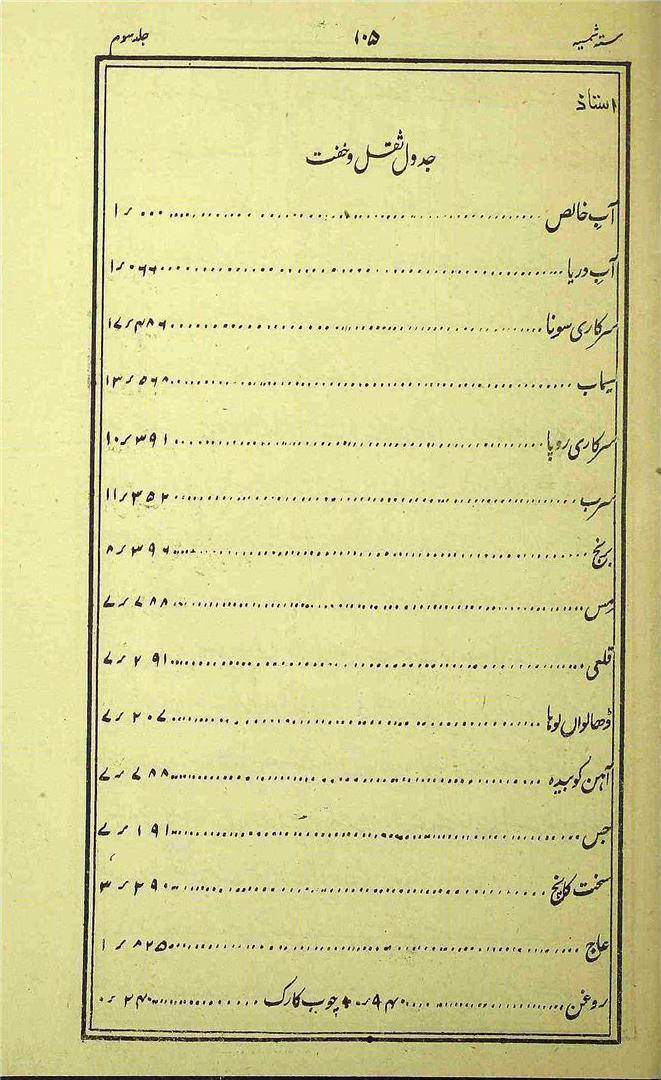 ستہ شمسیہ ۱۰۵ جلد سوم
استاذ
جدول ثقل و خفت
آبِ خالص ........ ۱٫۰۰۰
آبِ دریا ........ ۱٫۰۶۶
سرکاری سونا ........ ۱۷٫۴۸۶
سیماب ........ ۱۳٫۵۶۸
سرکاری روپا ........ ۱۰٫۳۹۱
سرب ........ ۱۱٫۳۵۲
برنج ........ ۸٫۳۹۶
مس ........ ۷٫۷۸۸
قلعی ........ ۷٫۲۹۱
ڈھالواں لوہا ........ ۷٫۲۰۷
آہن کوبیدہ ........ ۷٫۷۸۸
جس ........ ۷٫۱۹۱
سخت کانچ ........ ۳٫۲۹۰
عاج ........ ۱٫۸۲۵
روغن ........ ۰٫۹۴۰ چوب کارک ........ ۰٫۲۴۰